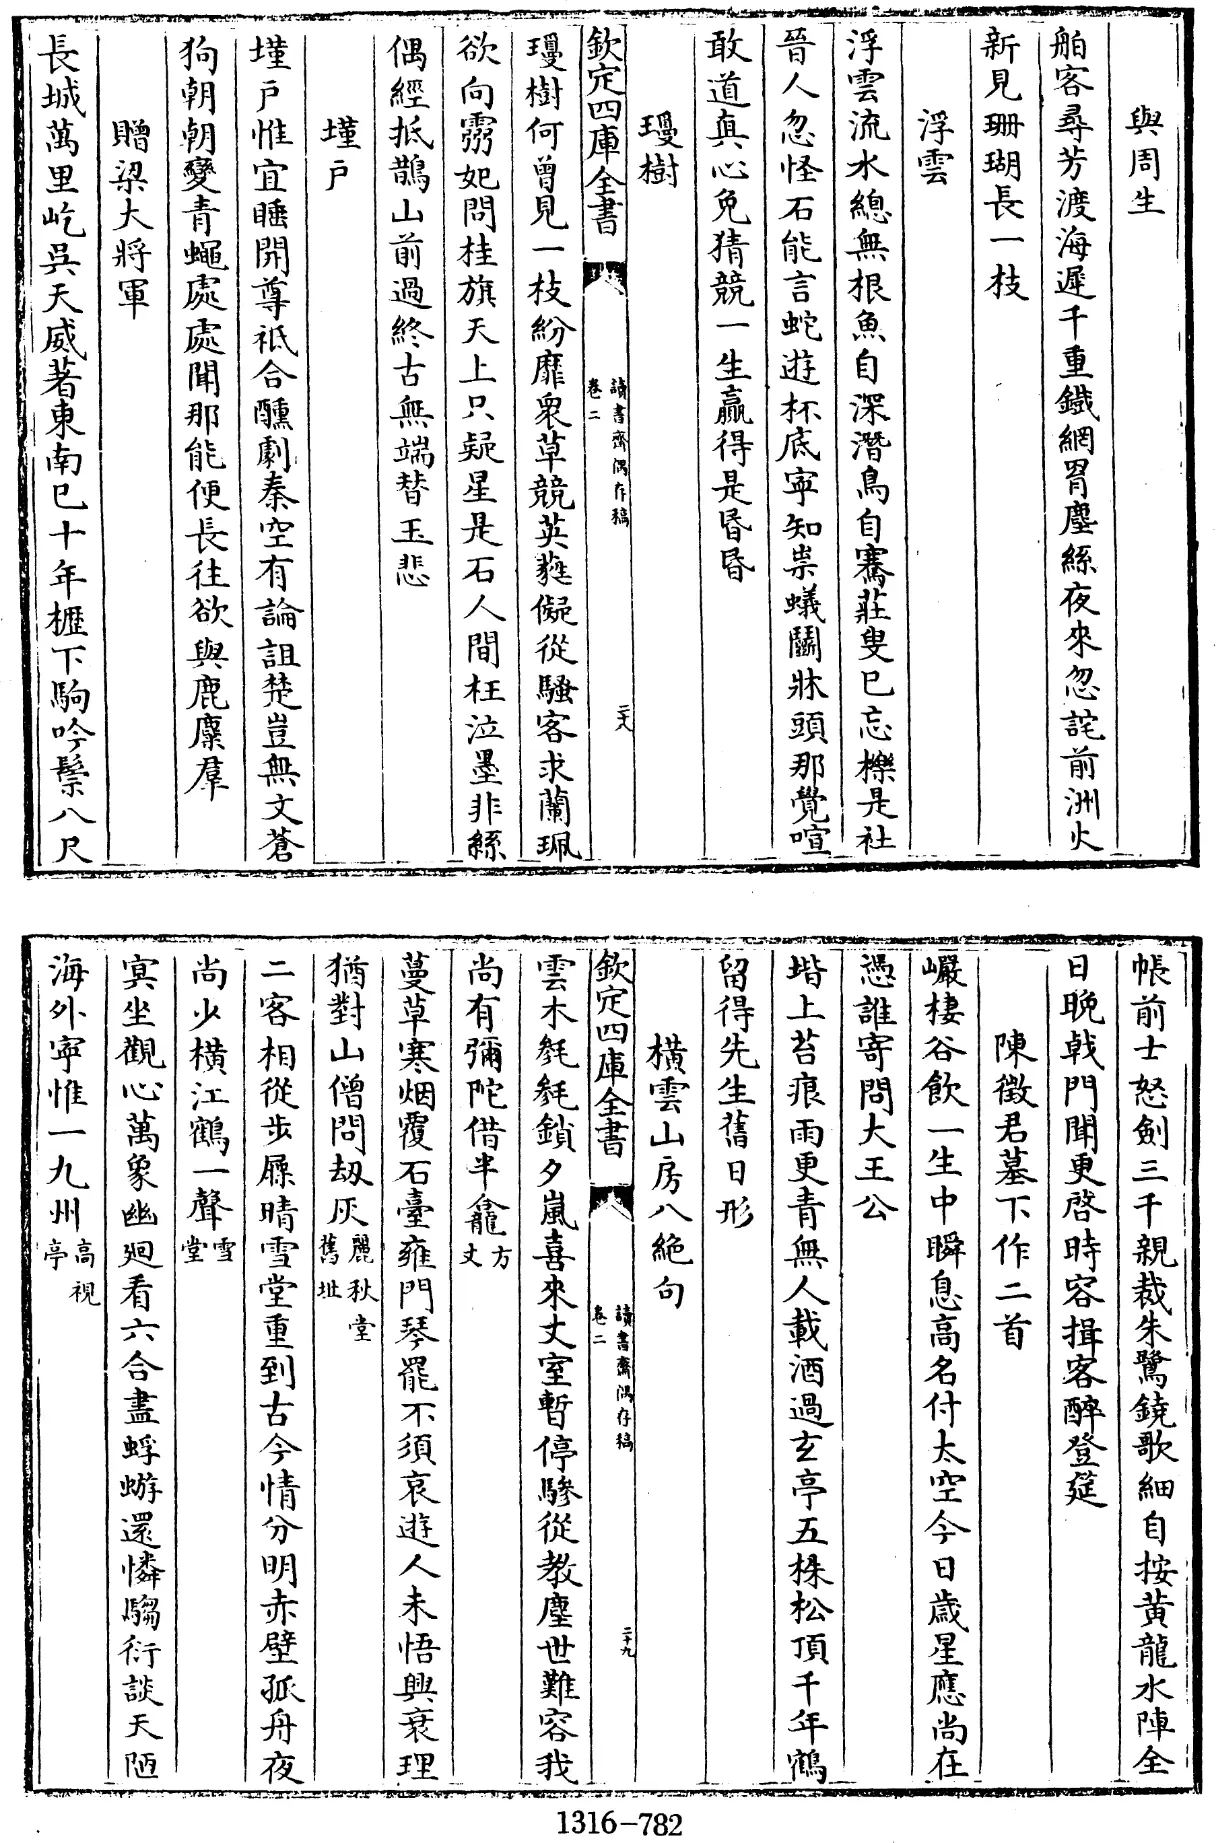 與周生
舶客尋芳渡海遲千重鐵網罥塵絲夜來忽詫前洲火
新見珊瑚長一枝
浮雲
浮雲流水總無根魚自深潛鳥自騫莊叟已忘櫟是社
晉人忽怪石能言蛇遊杯底寧知祟蟻鬬牀頭那覺喧
敢道真心免猜競一生贏得是昏昏
瓊樹
欽定四庫全書
讀書齋偶存稿
卷二
二十八
瓊樹何曾見一枝紛靡衆草競英蕤儗從騷客求蘭珮
欲向虙妃問桂旗天上只疑星是石人間枉泣墨非絲
偶經抵鵲山前過終古無端替玉悲
墐戶
墐戶惟宜睡開尊祗合醺劇秦空有論詛楚豈無文蒼
狗朝朝變青蠅處處聞那能便長往欲與鹿麋羣
贈梁大將軍
長城萬里屹吳天威著東南已十年櫪下駒吟鬃八尺
帳前士怒劍三千親裁朱鷺鐃歌細自按黃龍水陣全
日晚戟門聞更啓時容揖客醉登筵
陳徵君墓下作二首
巗棲谷飲一生中瞬息高名付太空今日歲星應尚在
憑誰寄問大王公
堦上苔痕雨更青無人載酒過玄亭五株松頂千年鶴
留得先生舊日形
橫雲山房八絶句
欽定四庫全書
讀書齋偶存稿
卷二
二十九
雲木毿毿鎖夕嵐喜來丈室暫停驂從教塵世難容我
尚有彌陀借半龕方丈
蔓草寒烟覆石臺雍門琴罷不須哀遊人未悟興衰理
猶對山僧問刼灰麗秋堂舊址
二客相從步屧晴雪堂重到古今情分明赤壁孤舟夜
尚少橫江鶴一聲雪堂
寘坐觀心萬象幽廻看六合盡蜉蝣還憐騶衍談天陋
海外寧惟一九州高視亭
1316-782